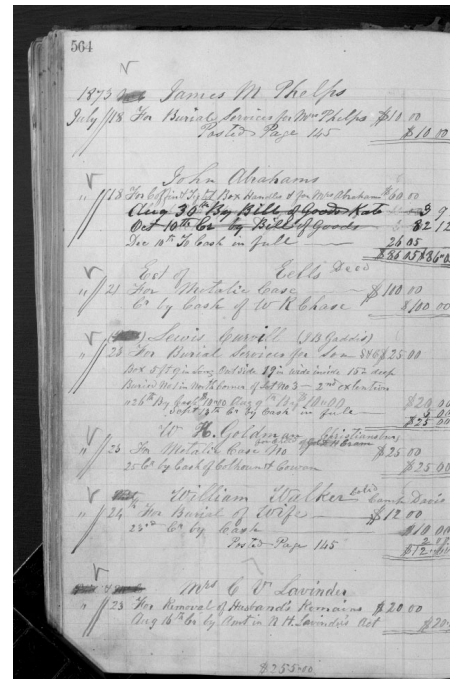 564
1873 James M Phelps
July 18 For Burial Services for Mrs Phelps $10.00
Posted Page 145 $10.00
John Abrahams
" 18 For Coffin & Box Handles & for Mrs Abrahams 60.00
Aug 30th By Bill of Goods
Oct 10th Cr by Bill of Goods 82 12
Dec 10th To Cash in full 26 05
Est of Eells Decd
" 21 For Metalic Case $100.00
Cr By Cash of W R Chase $100.00
Lewis (J B Gaddis)
" 23 For Burial Services for Son $25.00
Box 5 ft 9 in Long Out Side 19 in wide inside 15 in deep
Buried No 1 in North corner of Lot No 3 2nd extention
" 26th By Cash 10.00 Aug 9th 10.00 $20.00
Sept 13th Cr By Cash in full 5 00
$25 00
W. H. Goldman Christiansburg
" 25 For Metalic Case $25 00
25 Cr by Cash of Calhoun & Cowan $25 00
William Walker Cold
" 24th For Burial of Wife $12 00
25th Cr by Cash $10.00
Posted Page 145 2 00
$12.00
Mrs C V Lavinder
" 23 For Removal of Husband's Remains $20 00
Aug 16th Cr by Amt in R H Lavinder's Act $20
$255.00